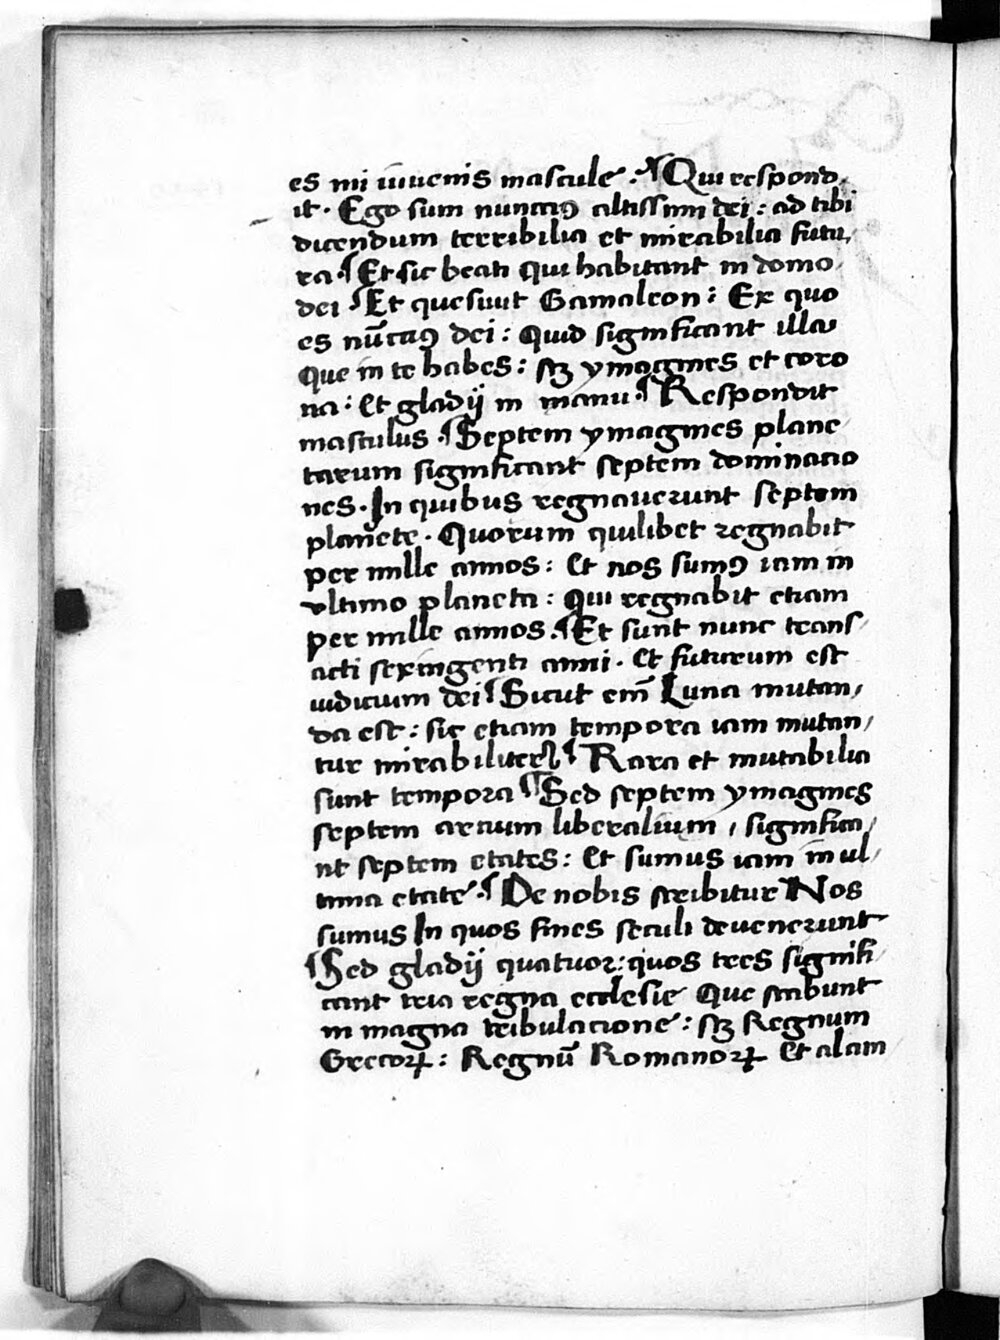 es mi iuuenis mascule. ¶ Qui respond,
it. Ego sum nunctiꝯ altissimi dei: ad tibi
dicendum terribilia et mirabilia futu,
ra ¶ Et sic beati qui habitant in domo
dei ¶ Et quesiuit Gamaleon: Ex quo
es nūctiꝯ dei: Quid significant illa
Que in te habes: sꝫ ymagines et coro
na: Et gladij in manu. ¶ Respondit
masculus. ¶ Septem ymagines plane
tarum significant septem dominatio
nes. In quibus regnauerunt septem
planete. Quorum quilibet regnabit
per mille annos: Et nos sumꝯ iam in
vltimo planeta: Qui regnabit etiam
per mille annos. ¶ Et sunt nunc trans,
acti sexingenti anni. Et futurum est
iudicium dei ¶ Sicut em̄ Luna mutan,
da est: sic etiam tempora iam mutan,
tur mirabiliter ¶ Rara et mutabilia
sunt tempora ¶ Sed septem ymagines
septem artium liberalium, significa,
nt septem etates: Et sumus iam in ul,
tima etate. ¶ De nobis scribitur Nos
sumus In quos fines seculi deuenerunt
¶ Sed gladij quatuor: quos tres signifi,
cant tria regna ecclesie Que stabunt
in magna tribulacione: sꝫ Regnum
Grecoꝝ: Regnū Romanoꝝ Et alam